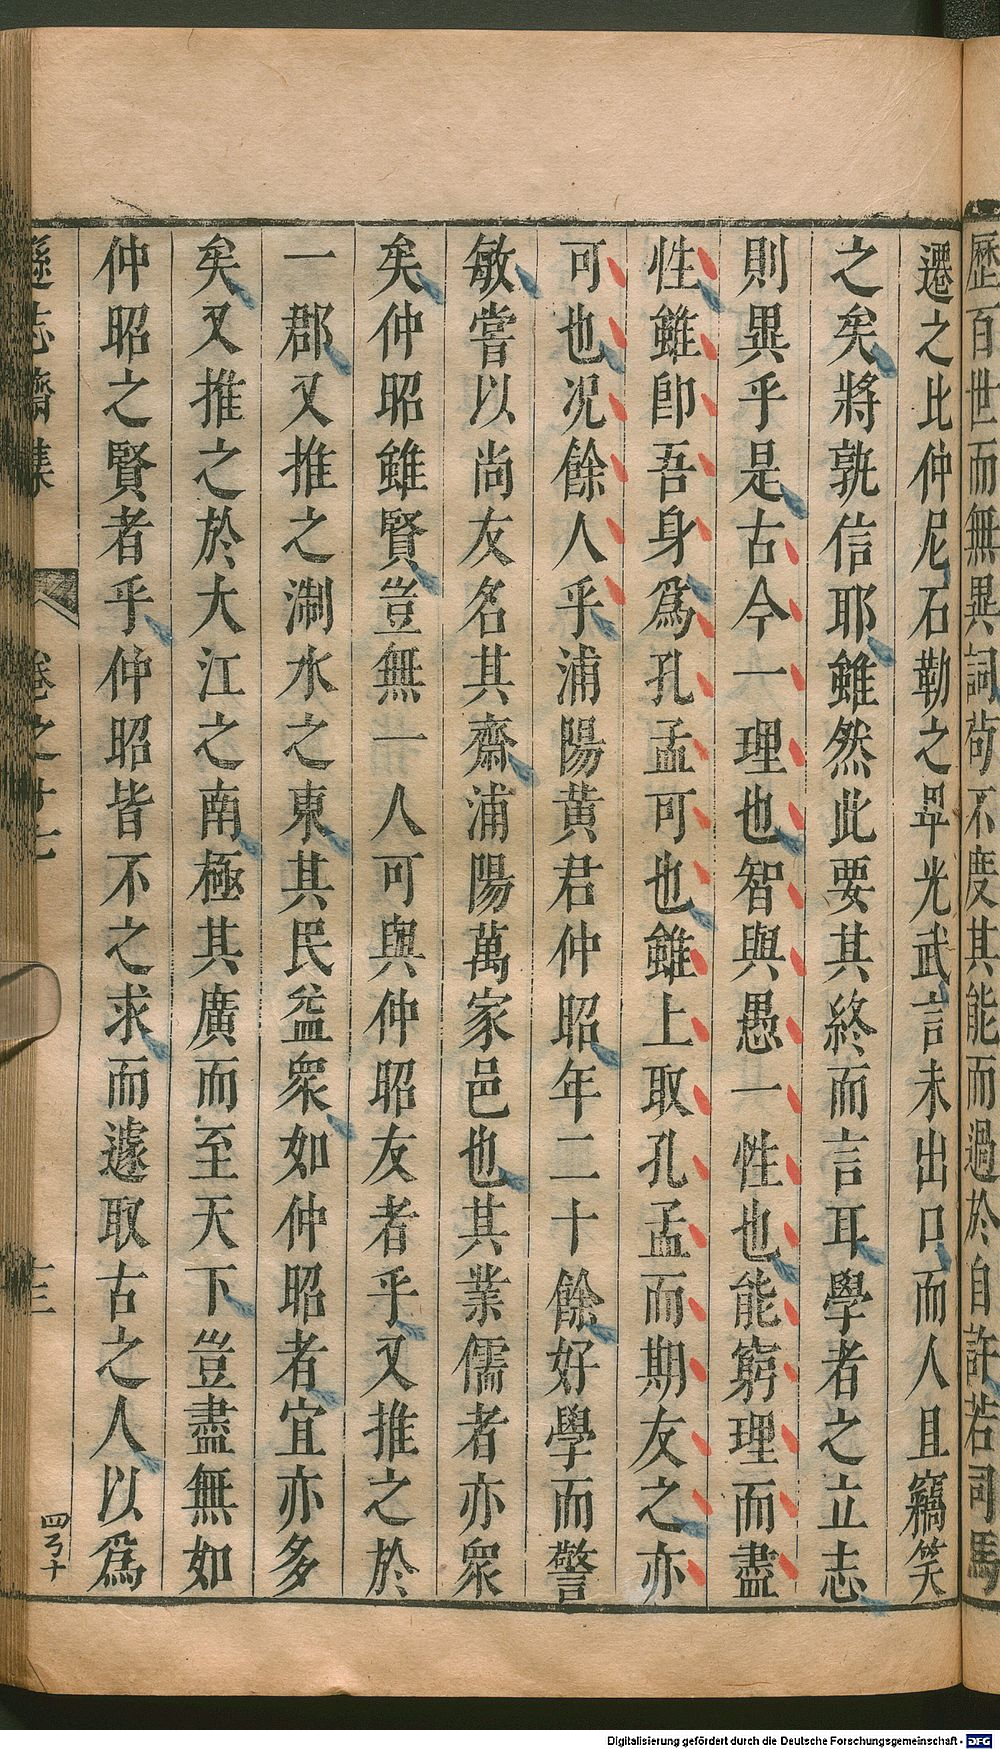 歷百世而無異詞苟不度其能而過於自許若司馬
遷之比仲尼石勒之卑光武言未出口而人且竊笑
之矣將孰信耶雖然此要其終而言耳學者之立志
則異乎是古今一理也智與愚一性也能窮理而盡
性雖即吾身爲孔孟可也雖上取孔孟而期友之亦
可也况餘人乎浦陽黄君仲昭年二十餘好學而警
敏嘗以尚友名其齋浦陽萬家邑也其業儒者亦衆
矣仲昭雖賢豈無一人可與仲昭友者乎又推之於
一郡又推之淛水之東其民益衆如仲昭者宜亦多
矣又推之於大江之南極其廣而至天下豈盡無如
仲昭之賢者乎仲昭皆不之求而遽取古之人以爲
遜志齋集 卷之十七 十三
Digitalisierung gefördert durch die Deutsche Forschungsgemeinschaft - DFG